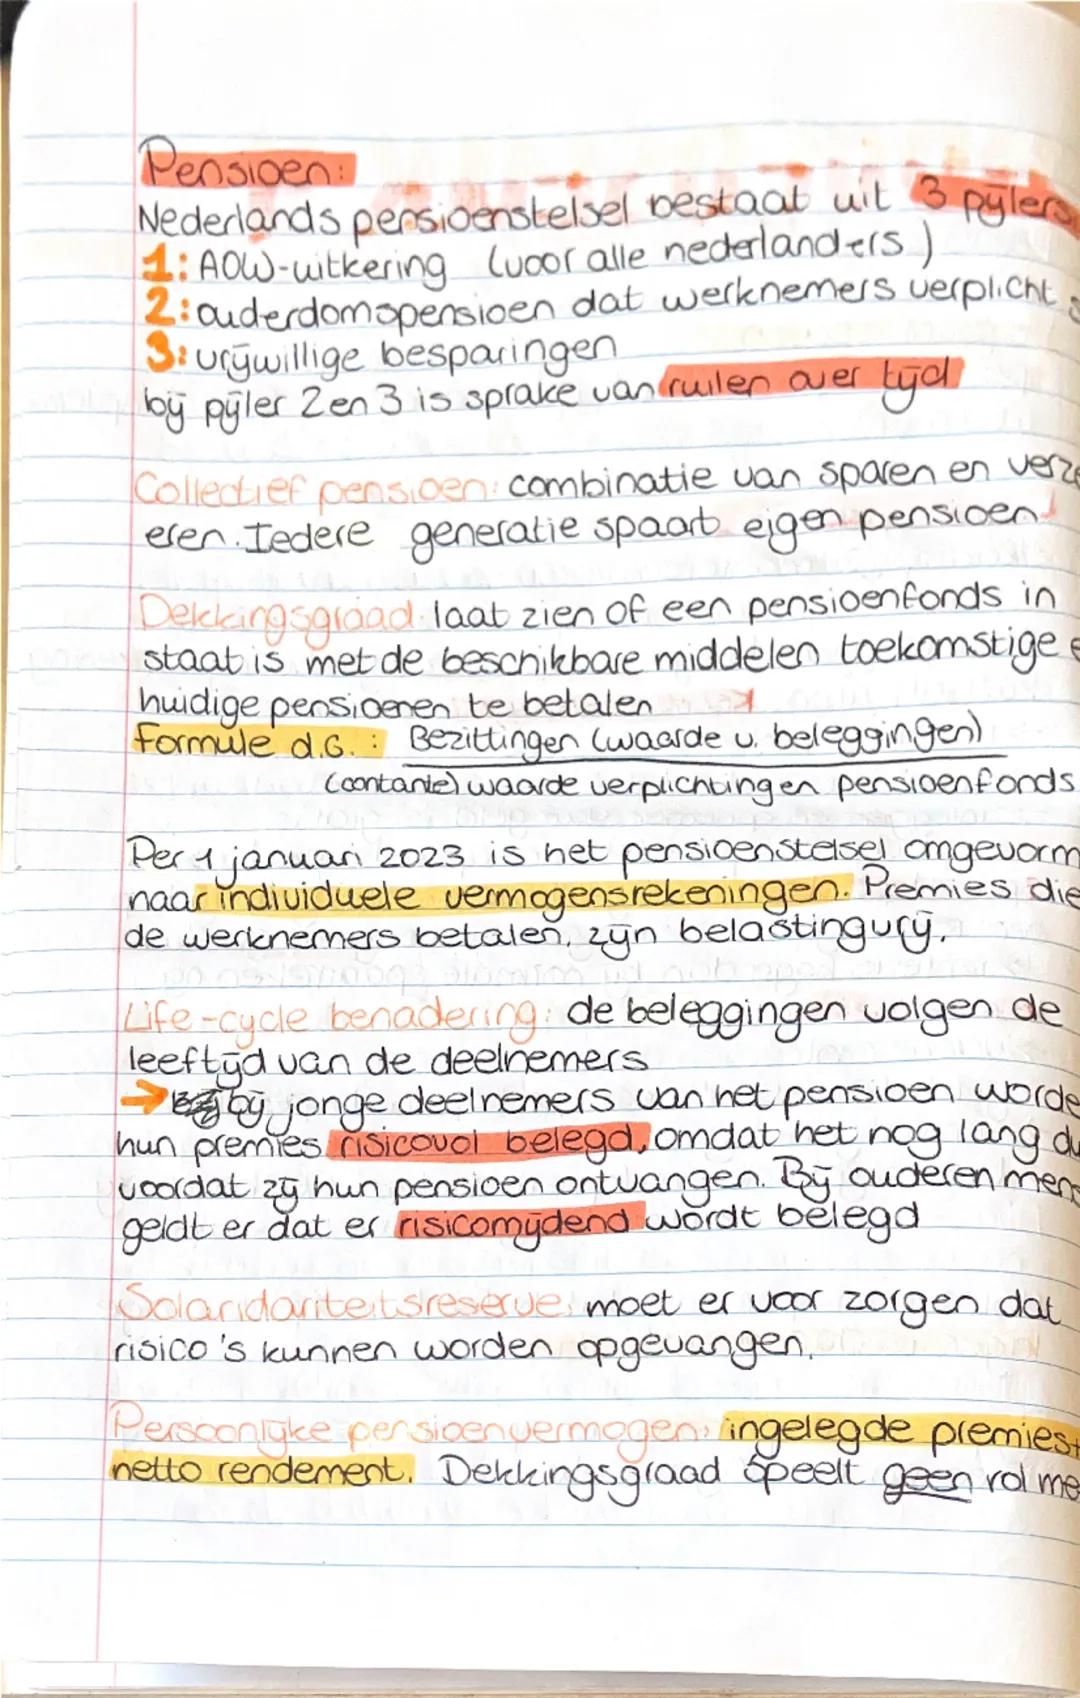 Pensioen:
Nederlands pensioenstelsel bestaat uit 3 pijlers
1: AOW-uitkering (voor alle nederlanders)
2: ouderdomspensioen dat werknemers verplicht s
3: vrijwillige besparingen
bij pijler 2 en 3 is sprake van ruilen over tijd
Collectief pensioen: combinatie van sparen en verze
eren. Iedere generatie spaart eigen pensioen
Dekkingsgraad: laat zien of een pensioenfonds in
staat is met de beschikbare middelen toekomstige e
huidige pensioenen te betalen
Formule d.G. : Bezittingen (waarde v. beleggingen)
(contante) waarde verplichtingen pensioenfonds
Per 1 januari 2023 is het pensioenstelsel omgevorm
naar individuele vermogensrekeningen. Premies die
de werknemers betalen, zijn belastingvrij.
Life-cycle benadering: de beleggingen volgen de
leeftijd van de deelnemers
→ bij jonge deelnemers van het pensioen worde
hun premies risicovol belegd, omdat het nog lang du
voordat zij hun pensioen ontvangen. Bij ouderen mens
geldt er dat er risicomijdend wordt belegd
Solaridariteitsreserve: moet er voor zorgen dat
risico's kunnen worden opgevangen.
Persoonlijke pensioenvermogen: ingelegde premies+
netto rendement. Dekkingsgraad speelt geen rol me